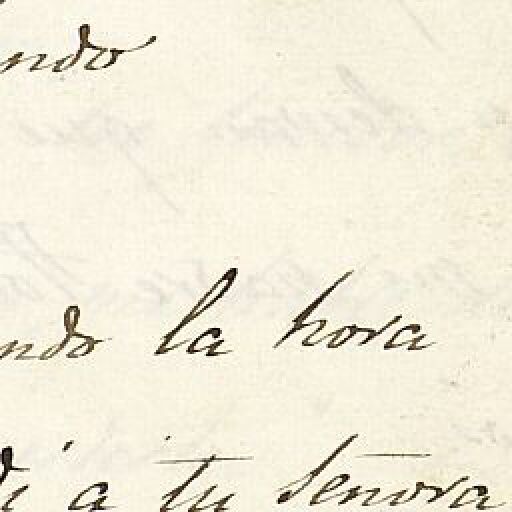 ndo
ndo la hora
di a tu señora